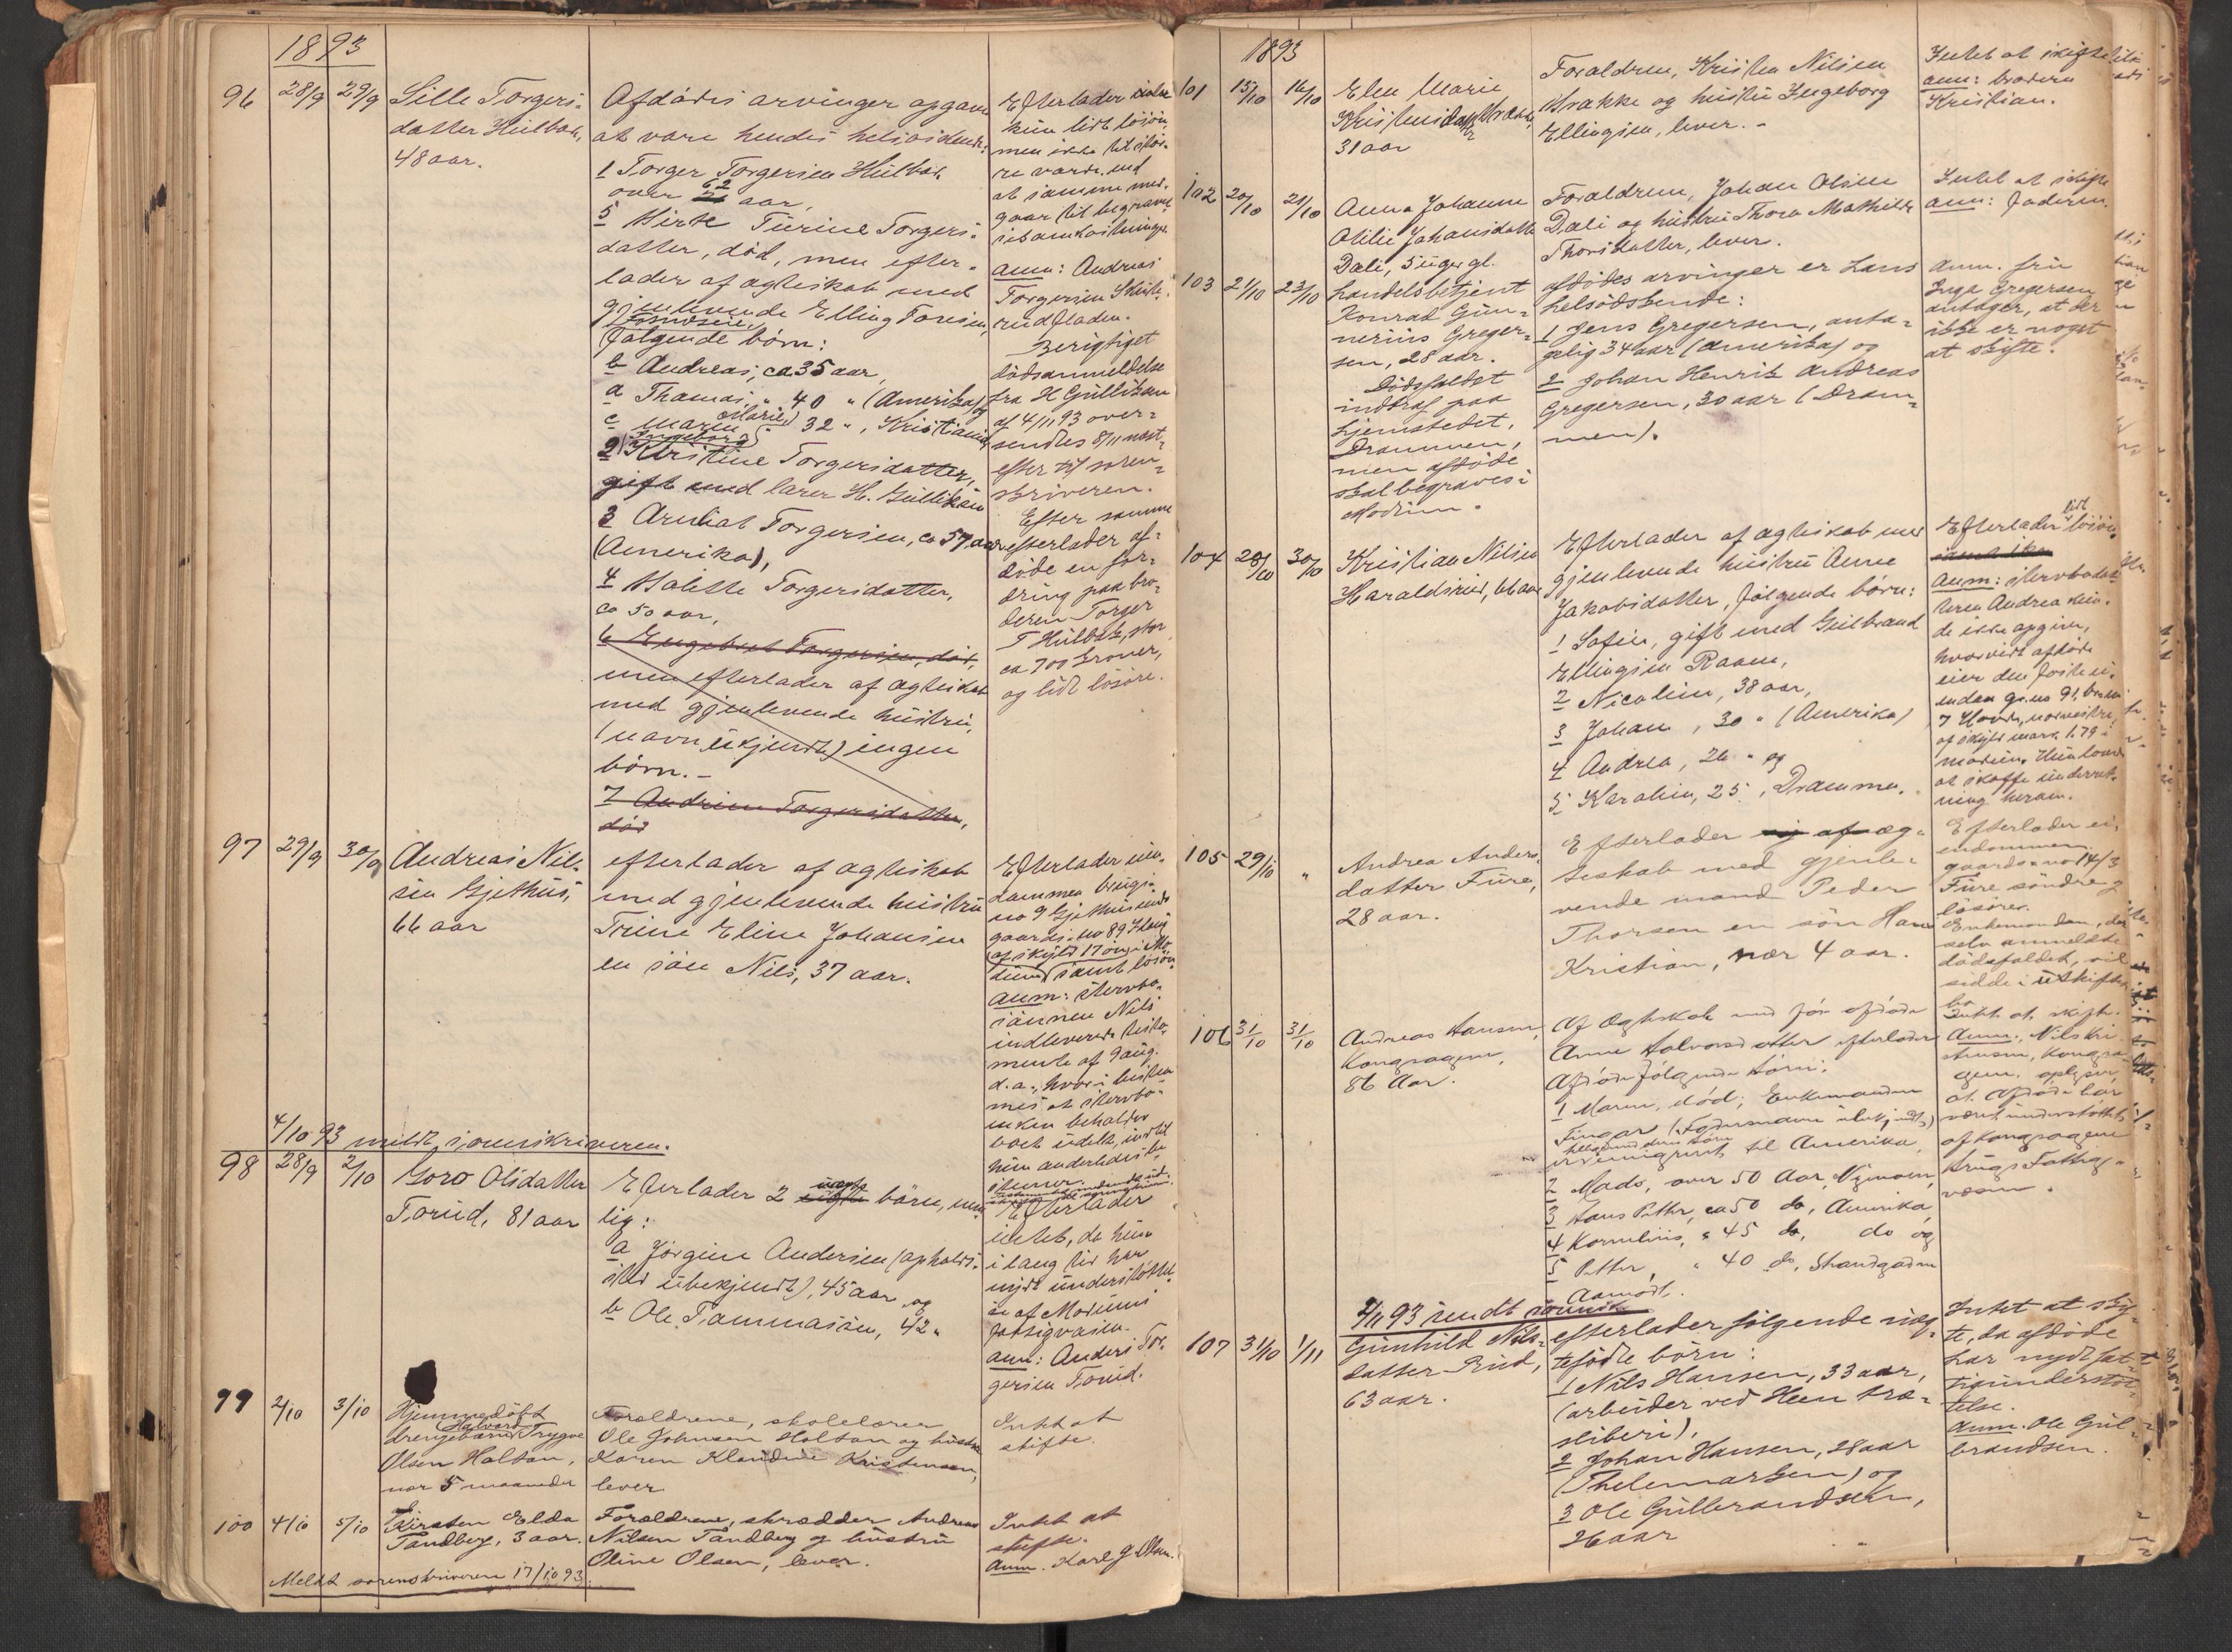 1893
96 28/9 29/9
Sille Torgers-
datter Hulbak,
48 aar.
Afdødes arvinger opgaves
at være hendes helsøskende:
1 Torger Torgersen Hulbak
over 62 aar,
5 Kirste Turine Torgers-
datter, død, men efter-
lader af ægteskab med
gjenlevende Elling
følgende børn:
b Andreas, ca 35 aar,
a Thomas, " 40 " (Amerika) og
c Maren Marie " 32 ", Kristiania
2 (Ingeborg) Kirstine Torgersdatter,
gift med lærer H. Gulliksen
3 Torgersen, ca 57 aar
(Amerika),
4 Torgersdatter,
ca 50 aar,
6 Engebret Torgersen, død,
men efterlader af ægteskab
med gjenlevende hustru,
(navn ukjendt) ingen
børn. -
7 Andrine Torgersdatter,
død
Efterlader
kun lidt løsøre,
men ikke til stør-
re værdi, end
at samme med-
gaar til begravel-
sesomkostninger.
anm: Andreas
Torgersen

Berigtiget
dødsanmeldelse
fra H Gulliksen
af 4/11 93 over-
sendtes 8/11 næst-
efter til soren-
skriveren.
Efter samme
efterlader af-
døde en for-
dring paa bro-
deren Torger
T Hulbak, stor
ca 700 kroner,
og lidt løsøre.
97 29/9 30/9
Andreas Nil-
sen Gjethus,
66 aar
efterlader af ægteskab
med gjenlevende hustru
Trine Eline Johansen
en søn Nils, 37 aar.
Efterlader eien-
dommen brugs-
no 9 Gjethus
gaards-no 89
af skyld 17 øre i Mo-
dum samt løsøre
anm: stervbo-
sønnen Nils
indleverede testa-
mente af 9 aug.
d.a., hvori bestem-
mes at stervbo-
enken beholder
boet udelt, indtil
hun anderledes be-
stemmer.
4/10 93 meldt sorenskriveren.
98 28/9 2/10
Goro Olsdatter
Torud, 81 aar
Efterlader 2 uægte børn, nem-
lig:
a Jørgine Andersen (opholds-
sted ubekjendt), 45 aar og
b Ole Tommassen, 42 "
Efterlader
intet, da hun
i lang tid har
nydt understøttel-
se af Modums
fattigvæsen.
anm: Anders Tor-
gersen Torud.
99 2/10 3/10
Hjemmedøbt
drengebarn Halvard Trygve
Olsen Holtan,
nær 5 maaneder
Forældrene, skolelærer
Ole Johnsen Holtan og hustru
Karen Klaudine Kristensen,
lever
Intet at
skifte.
100 4/10 5/10
Kirsten Elda
Tandberg, 3 aar.
Forældrene, skrædder Andreas
Nilsen Tandberg og hustru
Oline Olsen, lever.
Intet at
skifte.
anm. Karl G Olsen.
Meldt sorenskriveren 17/10 93.
1893
101 15/10 16/10
Elen Marie
Kristensdatter
31 aar
Forældrene, Kristen Nilsen
og hustru Ingeborg
Ellingsen, lever. -
Intet at skifte
anm: broderen
Kristian.
102 20/10 21/10
Anna Johanne
Otilie Johansdatter
Dæli, 5 uger gl.
Forældrene, Johan Olsen
Dæli og hustru Thora Mathilde
Thorsdatter, lever.
Intet at skifte
anm: faderen.
103 21/10 23/10
handelsbetjent
Konrad Gun-
nerius Greger-
sen, 28 aar.
Dødsfaldet
indtraf paa
hjemstedet,
Drammen,
men afdøde
skal begraves i
Modum.
afdødes arvinger er hans
helsødskende:
1 Jens Gregersen, anta-
gelig 34 aar (Amerika) og
2 Johan Henrik Andreas
Gregersen, 30 aar (Dram-
men).
anm. fru
Inga Gregersen
antager, at der
ikke er noget
at skifte.
104 28/10 30/10
Kristian Nilsen
Haraldsrud, 66 aar
Efterlader af ægteskab med
gjenlevende hustru Anne
Jakobsdatter, følgende børn:
1 Sofie, gift med Gulbrand
Ellingsen Raaen,
2 Nicoline, 38 aar,
3 Johan, 30 " (Amerika)
4 Andrea, 26 " og
5 Karoline, 25 ", Drammen.
Efterlader lidt løsøre,
anm: stervbodat-
teren Andrea kun-
de ikke opgive,
hvorvidt afdøde
eier den faste ei-
endom gr. no 91, br. no
7 Hovde, nordvestre,
af skyld mark 1.79 i
Modum. Hun lovede
at skaffe underret-
ning herom.
105 29/10 "
Andrea Anders-
datter Fure,
28 aar.
Efterlader af æg-
teskab med gjenle-
vende mand Peder
Thorsen en søn Hans
Kristian, nær 4 aar.
Efterlader ei-
endommen
gaards-no 14/3
Fure søndre og
løsøre.
Enkemanden, der
selv anmeldte
dødsfaldet, vil
sidde i uskiftet
bo
106 31/10 31/10
Andreas Hansen,
Kongsagen,
86 Aar.
Af Ægteskab med før afdøde
Anne Halvorsdatter efterlader
Afdøde følgende børn:
1 Maren, død; Enkemanden
Fingar (Fødenavn ubekjendt)
tilligemed deres børn
er emigreret til Amerika,
2 Mads, over 50 Aar, Nymoen,
3 Hans Petter, ca 50 do, Amerika,
4 Kornelius, " 45 do, do og
5 Petter, " 40 do, Strandgaden
Aamodt.
Intet at skifte.
Anm., Nils Kri-
stensen, Kongsa-
gen, oplyser,
at Afdøde har
været understøttet
af Kongsagene
Krugs Fattig-
væsen.
2/11 93 sendt sorensk
107 31/10 1/11
Gunhild Nils-
datter Rud,
63 aar.
efterlader følgende uæg-
tefødte børn:
1 Nils Hansen, 33 aar,
(arbeider ved Heen træ-
sliberi),
2 Johan Hansen, 28 aar
(Thelemarken) og
3 Ole Gulbrandsen,
26 aar
Intet at skif-
te, da afdøde
har nydt fat-
tigunderstøt-
telse.
Anm. Ole Gul-
brandsen.